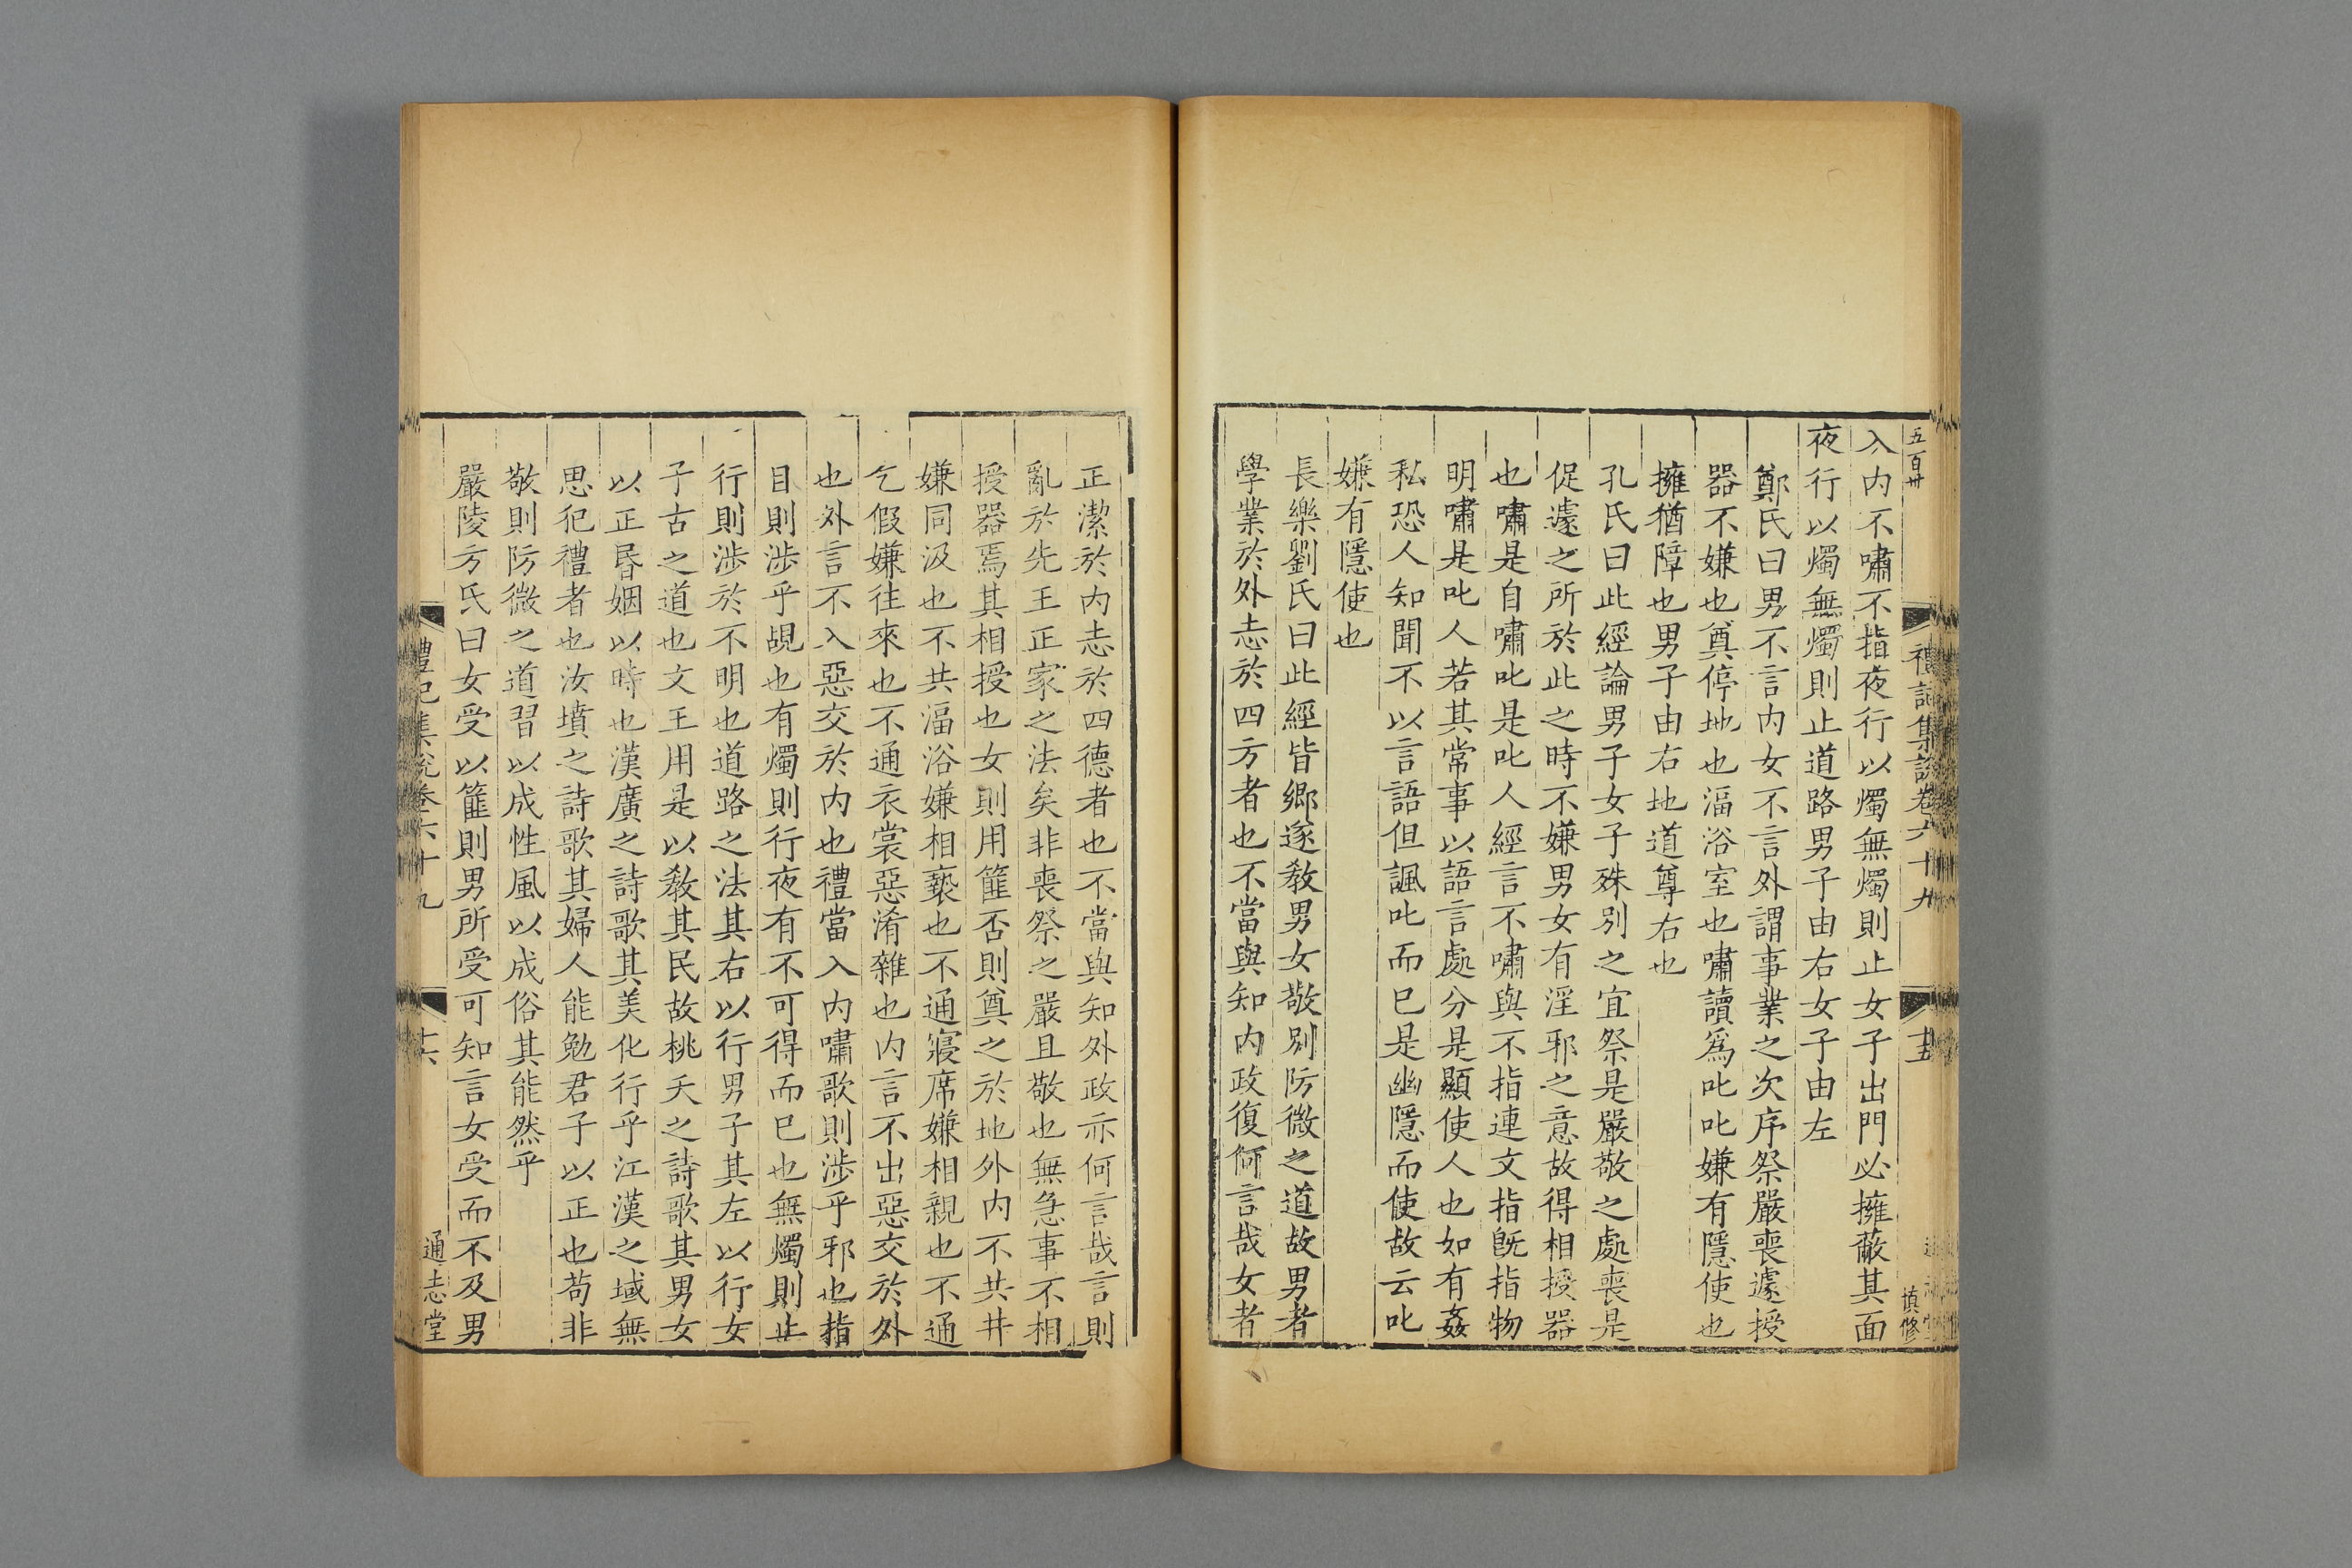 五百卅
禮記集說卷六十九
十五
填修
入內不嘯不指夜行以燭無燭則止女子出門必擁蔽其面
夜行以燭無燭則止道路男子由右女子由左
鄭氏曰男不言內女不言外謂事業之次序祭嚴喪遽授
器不嫌也奠停地也湢浴室也嘯讀爲叱叱嫌有隱使也
擁猶障也男子由右地道尊右也
孔氏曰此經論男子女子殊別之宜祭是嚴敬之處喪是
促遽之所於此之時不嫌男女有淫邪之意故得相授器
也嘯是自嘯叱是叱人經言不嘯與不指連文指旣指物
明嘯是叱人若其常事以語言處分是顯使人也如有姦
私恐人知聞不以言語但諷叱而已是幽隱而使故云叱
嫌有隱使也
長樂劉氏曰此經皆鄉遂敎男女敬別防微之道故男者
學業於外志於四方者也不當與知內政復何言哉女者
正潔於內志於四德者也不當與知外政亦何言哉言則
亂於先王正家之法矣非喪祭之嚴且敬也無急事不相
授器焉其相授也女則用篚否則奠之於地外內不共井
嫌同汲也不共湢浴嫌相褻也不通寢席嫌相親也不通
乞假嫌往來也不通衣裳惡淆雜也內言不出惡交於外
也外言不入惡交於內也禮當入內嘯歌則涉乎邪也指
目則涉乎覘也有燭則行夜有不可得而已也無燭則止
行則涉於不明也道路之法其右以行男子其左以行女
子古之道也文王用是以敎其民故桃夭之詩歌其男女
以正昬姻以時也漢廣之詩歌其美化行乎江漢之域無
思犯禮者也汝墳之詩歌其婦人能勉君子以正也苟非
敬則防微之道習以成性風以成俗其能然乎
嚴陵方氏曰女受以篚則男所受可知言女受而不及男
禮記集說卷六十九
十六
通志堂